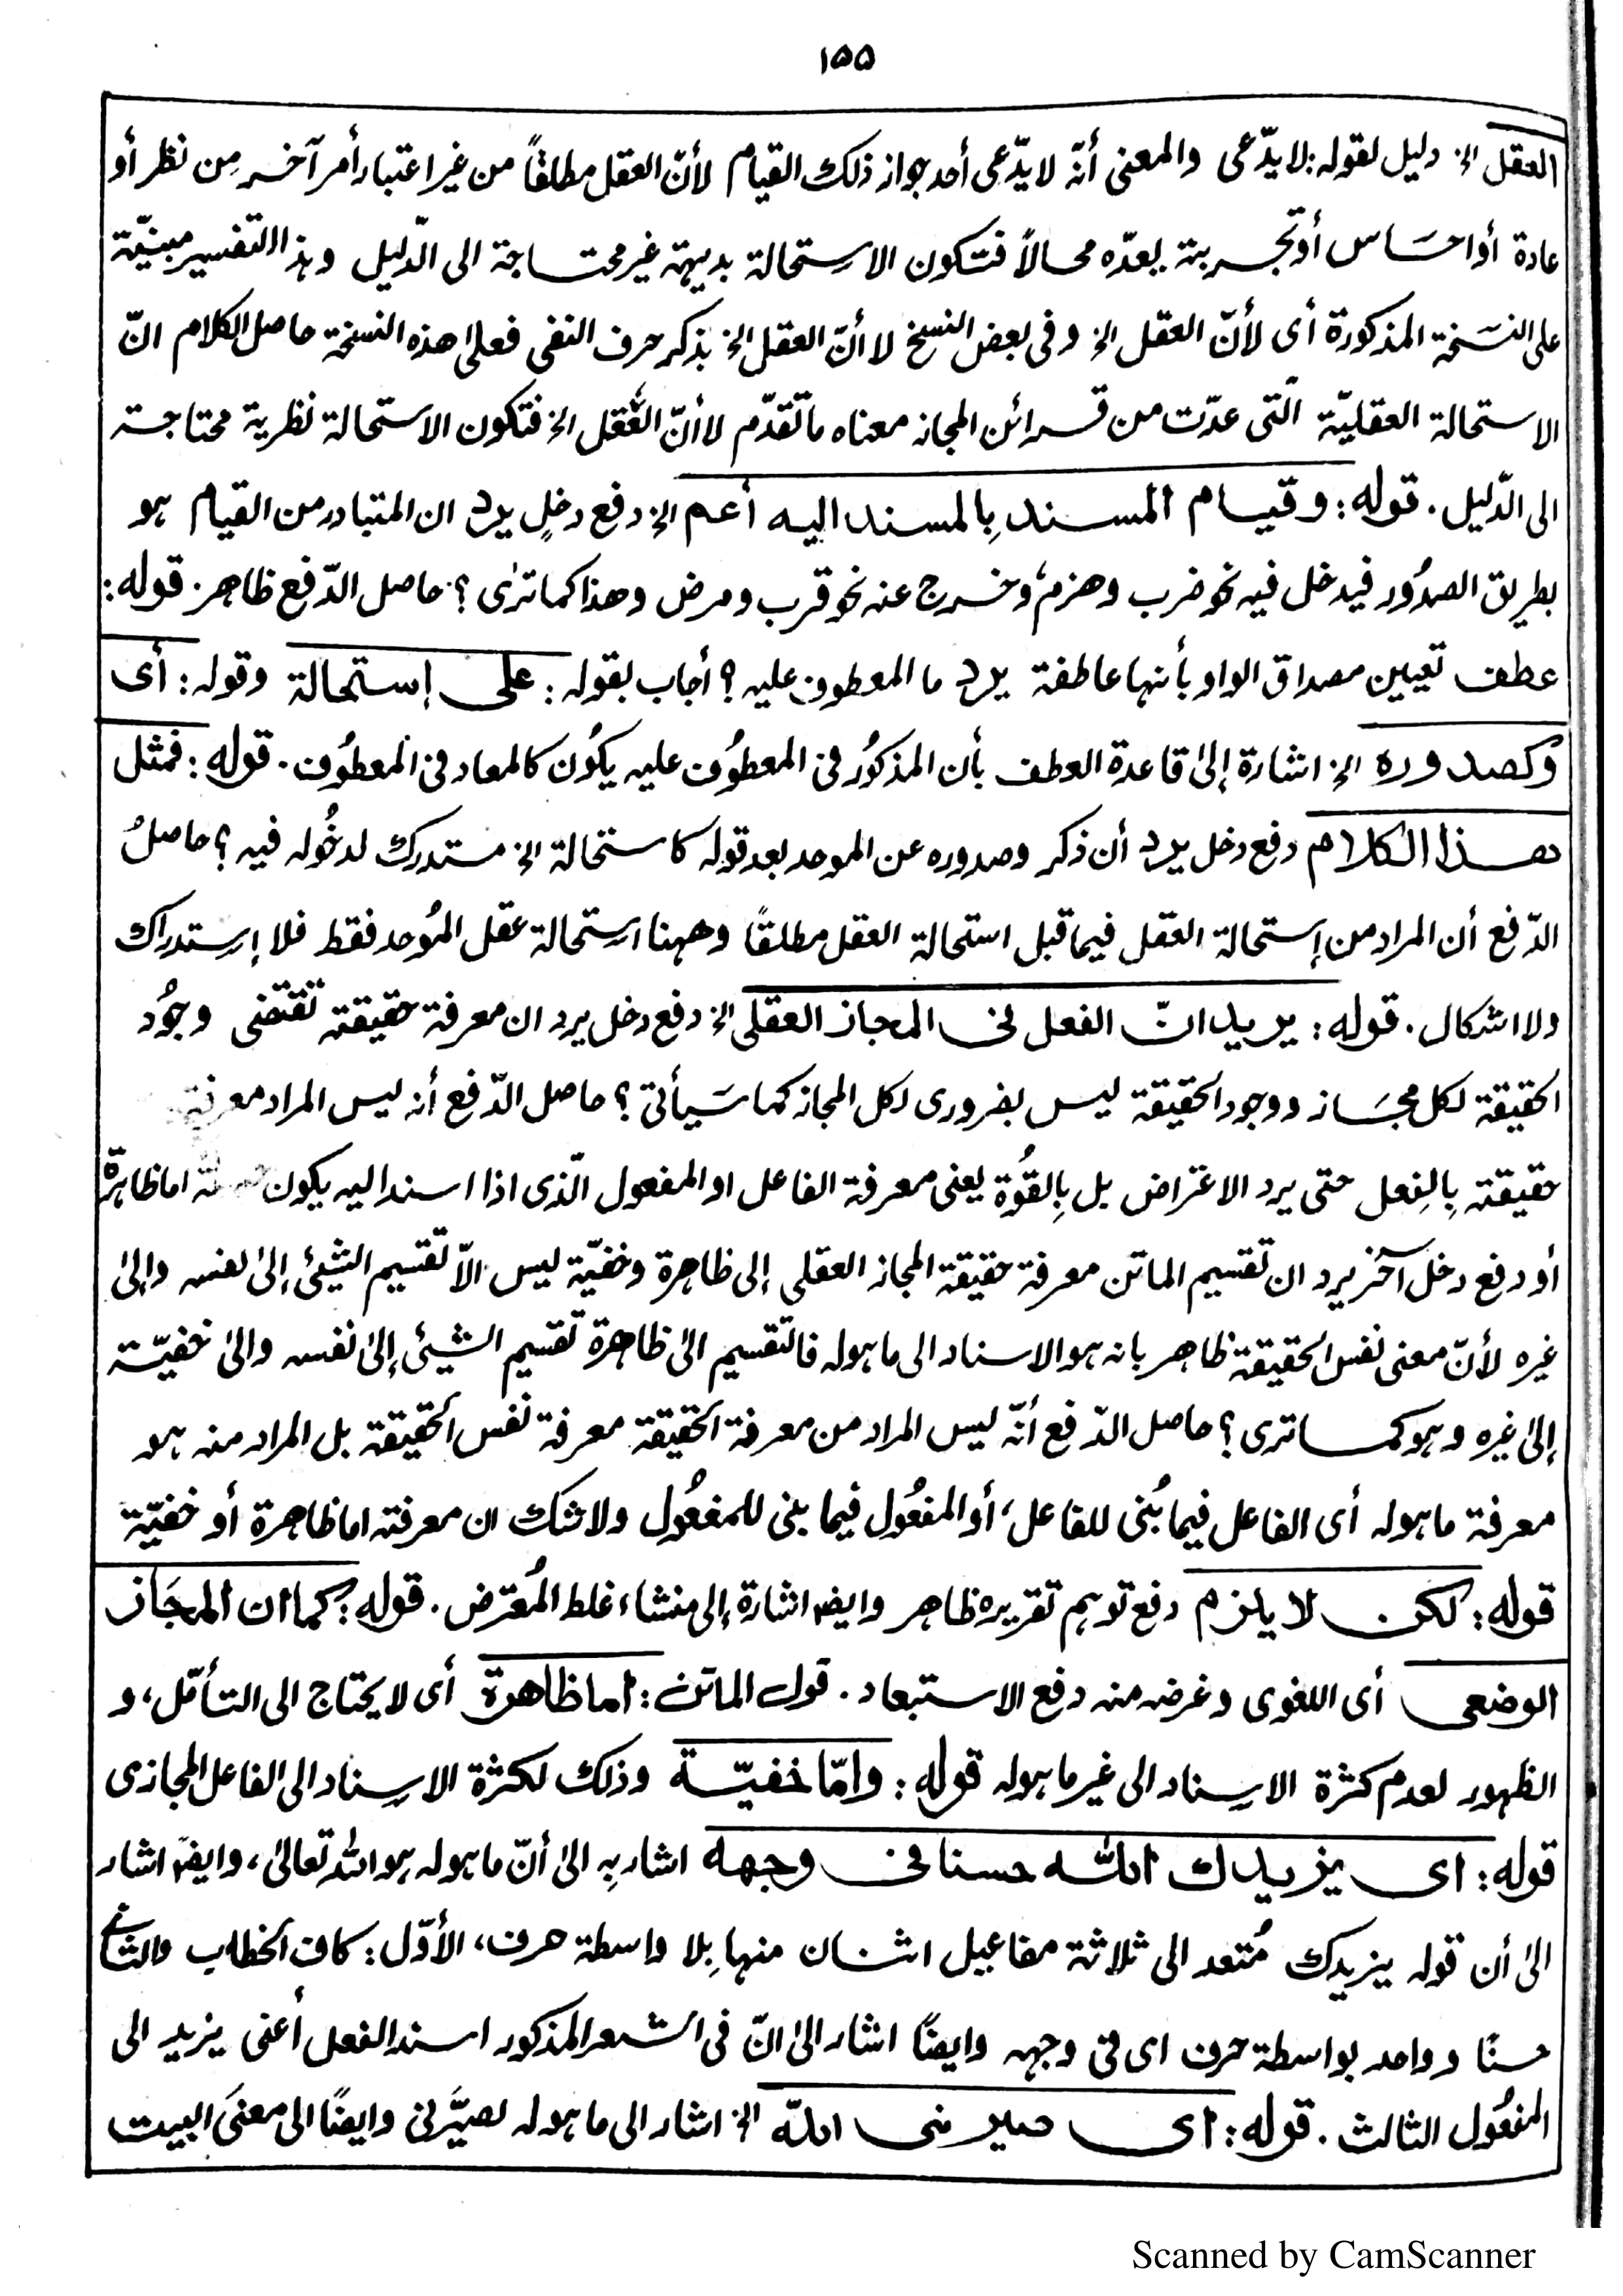 ١٥٥
العقل الخ دليل لقوله: لا يدّعى والمعنى أنّه لا يدّعى أحد جواز ذلك القيام لأنّ العقل مطلقاً من غير اعتبار أمر آخر مِن نظر أو
عادة أو احسَاس أو تجربة يعدّه محالاً فتكون الاستحالة بديهة غير محتاجة الى الدّليل وهذا التفسير مبنيّة
على النسَخة المذكورة أى لأنّ العقل الخ وفى بعض النسخ لا أنّ العقل الخ بذكر حرف النفى فعلى هذه النسخة حاصل الكلام انّ
الاستحالة العقليّة الّتى عدّت من قرائن المجاز معناه ما تقدّم لا أنّ العقل الخ فتكون الاستحالة نظرية محتاجة
الى الدّليل. قوله: وقيام المسند بِالمسند اليه أعم الخ دفع دخلٍ يرد ان المتبادر من القيام هو
بطريق الصدُور فيدخل فيه نحو ضرب وهزم وخرج عنه نحو قرب ومرض وهذا كما ترٰى؟ حاصل الدّفع ظاهر. قوله:
عطف تعيين مصداق الواو بأنها عاطفة يرد ما المعطوف عليه؟ أجاب بقوله: على إستحالة وقوله: أى
وُكصدوره الخ اشارة إلىٰ قاعدة العطف بأن المذكوُر فى المعطوُف عليه يكوُن كالمعاد فى المعطوُف. قوله: فمثل
هذا الكلام دفع دخل يرد أن ذكر وصدوره عن الموحد بعد قوله كاستحالة الخ مستدرك لدخُوله فيه؟ حاصلُ
الدّفع أن المراد من إستحالة العقل فيما قبل استحالة العقل مطلقًا وههنا استحالة عقل المُوحد فقط فلا إستدراك
ولا اشكال. قوله: يريد انّ الفعل فى المجاز العقلى الخ دفع دخل يرد ان معرفة حقيقته تقتضى وجوُد
الحقيقة لكل مجَاز ووجود الحقيقة ليس بضرورى لكل المجاز كما سَيأتى؟ حاصل الدّفع أنه ليس المراد معرفة
حقيقته بِالفِعل حتى يرد الاعتراض بل بِالقُوّة يعنى معرفة الفاعل او المفعول الّذى اذا اسند اليه يكون اما ظاهرة
أو دفع دخل آخر يرد ان تقسيم الماتن معرفة حقيقة المجاز العقلى إلى ظاهرة وخفيّة ليس الاّ تقسيم الشيئ إلىٰ نفسه وإلىٰ
غيره لأنّ معنى نفس الحقيقة ظاهر بانه هو الاسناد الى ما هو له فالتقسيم الىٰ ظاهرة تقسيم الشيئ إلىٰ نفسه والىٰ خفيّة
إلىٰ غيره وهو كما ترى؟ حاصل الدّفع أنّه ليس المراد من معرفة الحقيقة معرفة نفس الحقيقة بل المراد منه هو
معرفة ما هو له أى الفاعل فيما بُنى للفاعل، أو المفعُول فيما بنى للمفعُول ولا شك ان معرفته اما ظاهرة أو خفيّة
قوله: لكن لا يلزم دفع توهم تقريره ظاهر وايضا اشارة إلى منشاء غلط المُعترض. قوله: كما ان المجَاز
الوضعى أى اللغوى وغرضه منه دفع الاستبعاد. قول الماتن: اما ظاهرة أى لا يحتاج الى التأمّل، و
الظهور لعدم كثرة الاسناد الى غير ما هو له قوله: وامّا خفيّة وذلك لكثرة الاسناد الى الفاعل المجازى
قوله: اى يزيدك الله حسنا فى وجهه اشار بِه الىٰ أنّ ما هو له هو الله تعالىٰ، وايضًا اشار
الىٰ أن قوله يزيدك مُتعد الى ثلاثة مفاعيل اثنان منها بِلا واسطة حرف، الأوّل: كاف الخطاب والثانى
حسنًا وواحد بواسطة حرف اى فى وجهه وايضًا اشار الىٰ انّ فى الشعر المذكور اسند الفعل أعنى يزيد الى
المفعُول الثالث. قوله: اى صيرنى الله الخ اشار الى ما هو له لصيَّرنى وايضًا الى معنىَ البيت
Scanned by CamScanner